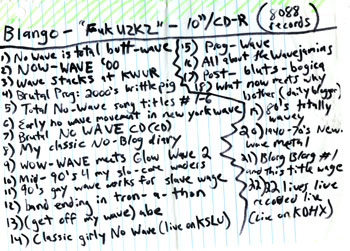 Blango - "Fuk U2K2" - 10"/CD-R (8088 records)
1) No wave is total butt-wave
2) NOW-WAVE '00
3) Wave stacks at KWUR
4) Brutal Prog: 2000's brittle pig
5) Total No-wave song titles #1-6
6) Early no wave movement in new york wave
7) Brutal No WAVE CD (CD)
8) My classic No-Blog diary
9) WOW-WAVE meets Glow Wave 2
10) Mid-90's 4 my slo-core
11) 90's gay wave works for slave wage
12) band ending in tron-a-thon
13) (get off my wave) abe
14) Classic girly No Wave (live on KSLU)
15) Prog-wave
16) All about the Wavejamins
17) Post-blues-bogica
18) What now meets why bother (daily blogger)
19) 80's totally wavey
20) 1940-70's New-wave metal
21) Blorg Blorg #1 and this title wage
22) 22 lives live recorded live (live on KDHX)